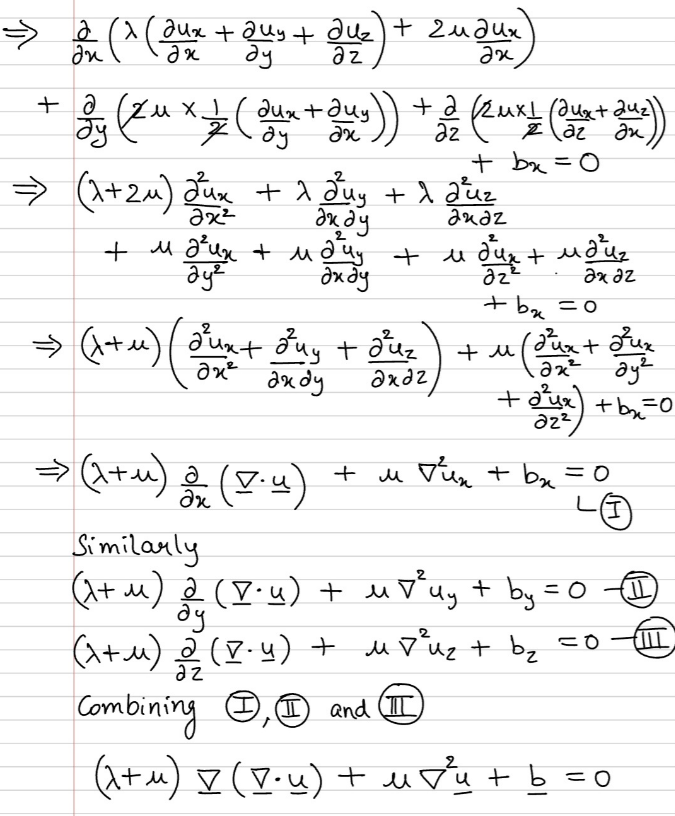 ⇒ ∂/∂x (λ(∂uₓ/∂x + ∂u_y/∂y + ∂u_z/∂z) + 2μ ∂uₓ/∂x)
+ ∂/∂y (2μ × 1/2 (∂uₓ/∂y + ∂u_y/∂x)) + ∂/∂z (2μ × 1/2 (∂uₓ/∂z + ∂u_z/∂x))
+ bₓ = 0
⇒ (λ+2μ) ∂²uₓ/∂x² + λ ∂²u_y/∂x∂y + λ ∂²u_z/∂x∂z
+ μ ∂²uₓ/∂y² + μ ∂²u_y/∂x∂y + μ ∂²uₓ/∂z² + μ ∂²u_z/∂x∂z
+ bₓ = 0
⇒ (λ+μ) (∂²uₓ/∂x² + ∂²u_y/∂x∂y + ∂²u_z/∂x∂z) + μ (∂²uₓ/∂x² + ∂²uₓ/∂y²
+ ∂²uₓ/∂z²) + bₓ = 0
⇒ (λ+μ) ∂/∂x (∇·u) + μ ∇²uₓ + bₓ = 0
Ⓘ
Similarly
(λ+μ) ∂/∂y (∇·u) + μ∇²u_y + b_y = 0 — Ⅱ
(λ+μ) ∂/∂z (∇·u) + μ∇²u_z + b_z = 0 — Ⅲ
Combining Ⓘ, Ⅱ and Ⅲ
(λ+μ) ∇(∇·u) + μ∇²u + b = 0